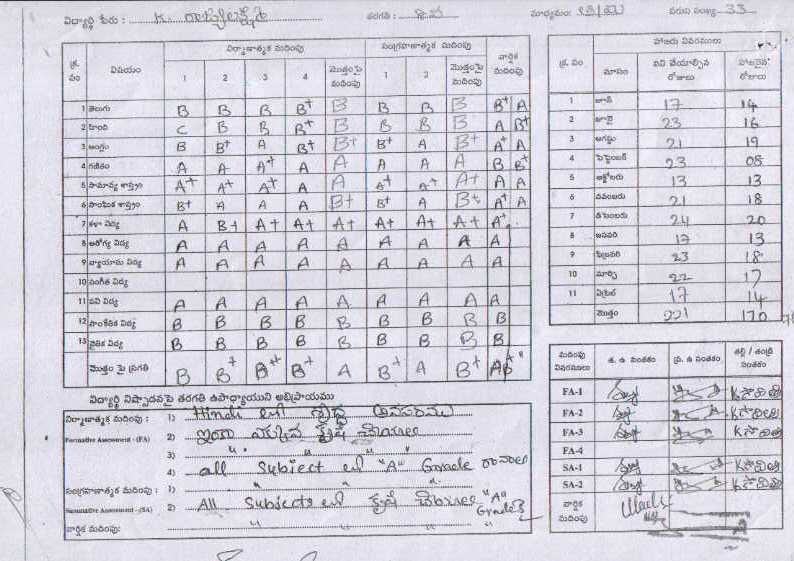 విద్యార్థి పేరు : K. రాజ్యలక్ష్మి తరగతి : మాధ్యమం: వరుస సంఖ్య: 33
నిర్మాణాత్మక మదింపు సంగ్రహణాత్మక మదింపు వార్షిక మదింపు
క్ర. సం విషయం 1 2 3 4 మొత్తంపై మదింపు 1 2 మొత్తంపై మదింపు
1 తెలుగు B B B B+ B B B B B+ A
2 హింది C B B B+ B B B B A B+
3 ఆంగ్లం B B+ A B+ B+ B+ A B+ A+ A
4 గణితం A A A+ A A A A A B B+
5 సామాన్య శాస్త్రం A+ A+ A+ A A A+ A+ A+ A A
6 సాంఘిక శాస్త్రం B+ A A A B+ B+ A B+ A+ A
7 కళా విద్య A B+ A+ A+ A+ A+ A+ A+ A+
8 ఆరోగ్య విద్య A A A A A A A A A
9 వ్యాయామ విద్య A A A A A A A A A
10 సంగీత విద్య
11 పని విద్య A A A A A A A A A
12 సాంకేతిక విద్య B B B B B B B B B
13 నైతిక విద్య B B B B B B B B B
మొత్తం పై ప్రగతి B B+ B++ B+ A B+ A B+
విద్యార్థి నిష్పాదనపై తరగతి ఉపాధ్యాయుని అభిప్రాయము
నిర్మాణాత్మక మదింపు : 1) Hindi లో శ్రద్ధ అవసరము
Formative Assessment - (FA) 2) ఇంకా ఎక్కువ కృషి చేయాలి
3) " " "
4) all Subject లో "A" Grade రావాలి
సంగ్రహణాత్మక మదింపు : 1) " " "
Summative Assessment - (SA) 2) All Subjects లో కృషి చేయాలి "A" Grade కై
వార్షిక మదింపు: " "
హాజరు వివరములు
క్ర. సం మాసం పని చేయాల్సిన రోజులు హాజరైన రోజులు
1 జూన్ 17 14
2 జూలై 23 16
3 ఆగస్టు 21 19
4 సెప్టెంబర్ 23 08
5 అక్టోబరు 13 13
6 నవంబరు 21 18
7 డిసెంబరు 24 20
8 జనవరి 17 13
9 ఫిబ్రవరి 23 18
10 మార్చి 22 17
11 ఏప్రిల్ 17 14
మొత్తం 221 170
మదింపు వివరములు త. ఉ సంతకం ప్ర. ఉ సంతకం తల్లి / తండ్రి సంతకం
FA-1
FA-2
FA-3
FA-4
SA-1
SA-2
వార్షిక మదింపు